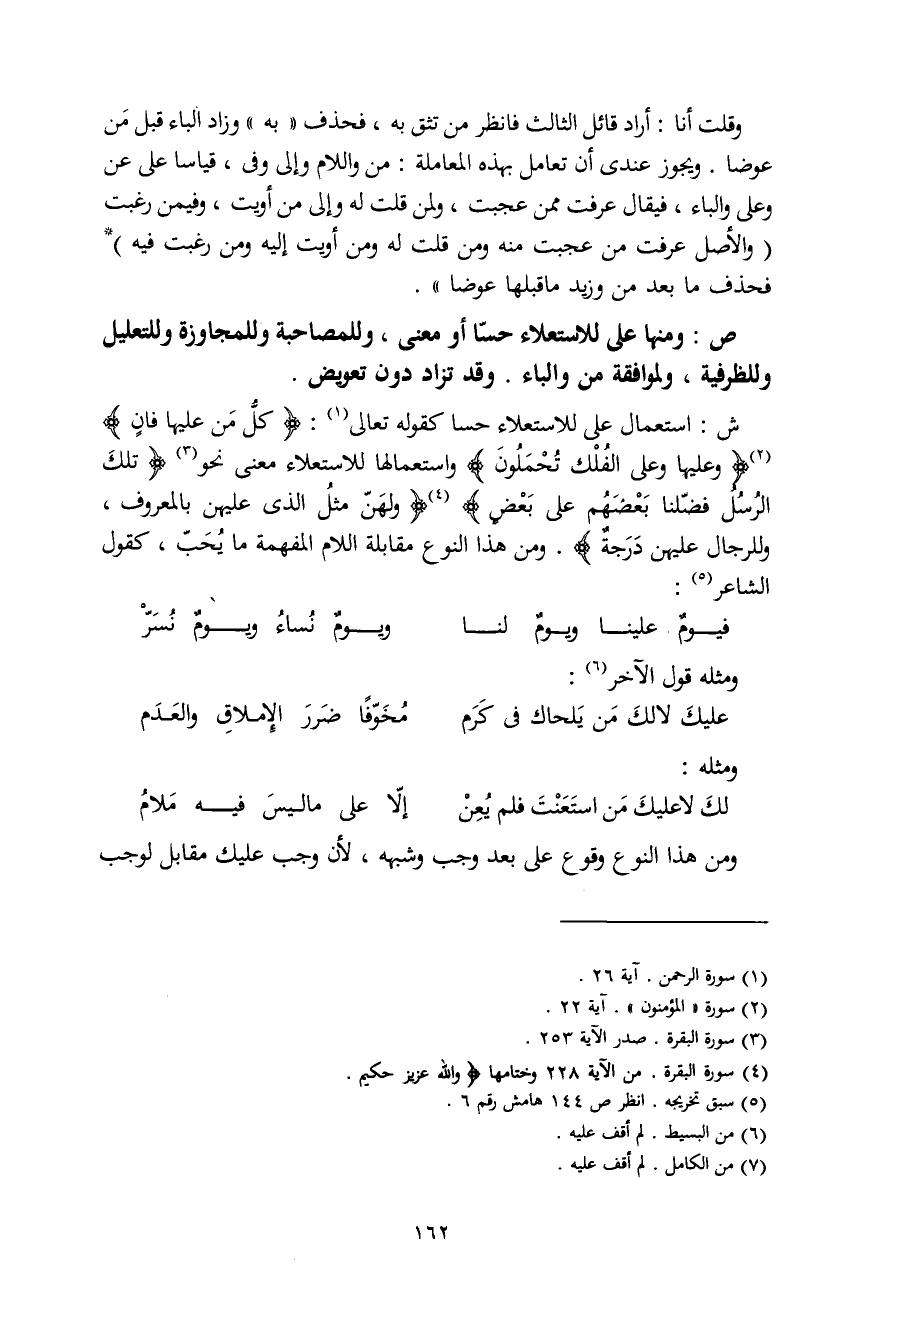 وقلت أنا : أراد قائل الثالث فانظر من تثق به ، فحذف « به » وزاد الباء قبل مَن
عوضا . ويجوز عندى أن تعامل بهذه المعاملة : من واللام وإلى وفى ، قياسا على عن
وعلى والباء ، فيقال عرفت ممن عجبت ، ولمن قلت له وإلى من أويت ، وفيمن رغبت
( والأصل عرفت من عجبت منه ومن قلت له ومن أويت إليه ومن رغبت فيه )*
فحذف ما بعد من وزيد ماقبلها عوضا » .
ص : ومنها على للاستعلاء حسّا أو معنى ، وللمصاحبة وللمجاوزة وللتعليل
وللظرفية ، ولموافقة من والباء . وقد تزاد دون تعويض .
ش : استعمال على للاستعلاء حسا كقوله تعالى(١) : ﴿ كلُّ مَن عليها فانٍ ﴾
(٢)﴿ وعليها وعلى الفُلْك تُحْمَلُونَ ﴾ واستعمالها للاستعلاء معنى نحو(٣) ﴿ تلكَ
الرُسُلُ فضّلنا بَعْضَهُم على بَعْضٍ ﴾ (٤)﴿ ولهَنّ مثلُ الذى عليهن بالمعروف ،
وللرجال عليهن دَرَجةٌ ﴾ . ومن هذا النوع مقابلة اللام المفهمة ما يُحَبّ ، كقول
الشاعر(٥) :
فيــومٌ علينــا ويــومٌ لنــا ويــومٌ نُساءُ ويــومٌ نُسَرّْ
ومثله قول الآخر(٦) :
عليكَ لالكَ مَن يَلحاك فى كَرَم مُخَوّفًا ضَرَرَ الإمـلاقِ والعَـدَم
ومثله :
لكَ لاعليكَ مَن استَعَنْتَ فلم يُعِنْ إلّا على ماليسَ فيــه مَلامُ
ومن هذا النوع وقوع على بعد وجب وشبهه ، لأن وجب عليك مقابل لوجب
(١) سورة الرحمن . آية ٢٦ .
(٢) سورة « المؤمنون » . آية ٢٢ .
(٣) سورة البقرة . صدر الآية ٢٥٣ .
(٤) سورة البقرة . من الآية ٢٢٨ وختامها ﴿ والله عزيز حكيم .
(٥) سبق تخريجه . انظر ص ١٤٤ هامش رقم ٦ .
(٦) من البسيط . لم أقف عليه .
(٧) من الكامل . لم أقف عليه .
١٦٢